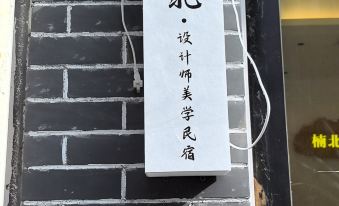 北·设计师美学民宿
楠北